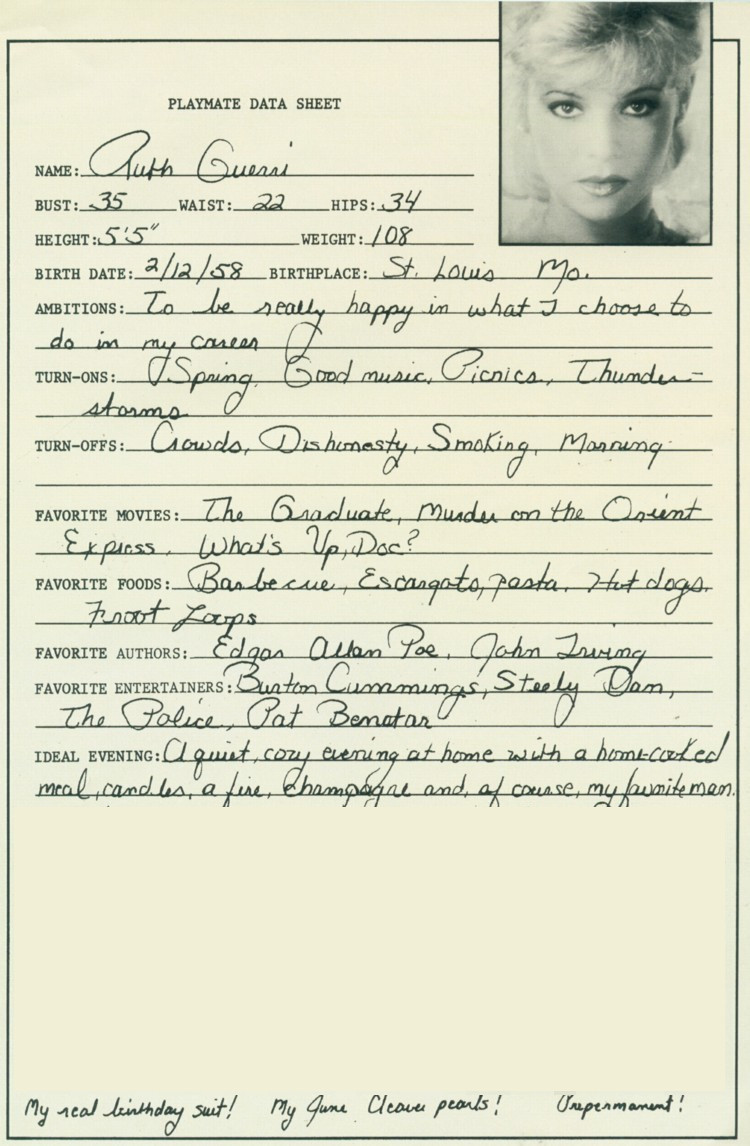 PLAYMATE DATA SHEET
NAME: Ruth Guerri
BUST: 35 WAIST: 22 HIPS: 34
HEIGHT: 5'5" WEIGHT: 108
BIRTH DATE: 2/12/58 BIRTHPLACE: St. Louis Mo.
AMBITIONS: To be really happy in what I choose to
do in my career
TURN-ONS: Spring, Good music, Picnics, Thunder-
storms
TURN-OFFS: Crowds, Dishonesty, Smoking, Morning
FAVORITE MOVIES: The Graduate, Murder on the Orient
Express, What's Up, Doc?
FAVORITE FOODS: Barbecue, Escargots, pasta, Hot dogs,
Froot Loops
FAVORITE AUTHORS: Edgar Allan Poe, John Irving
FAVORITE ENTERTAINERS: Burton Cummings, Steely Dan,
The Police, Pat Benatar
IDEAL EVENING: A quiet, cozy evening at home with a home-cooked
meal, candles, a fire, champagne and, of course, my favorite man.
My real birthday suit! My June Cleaver pearls! Unpermanent!